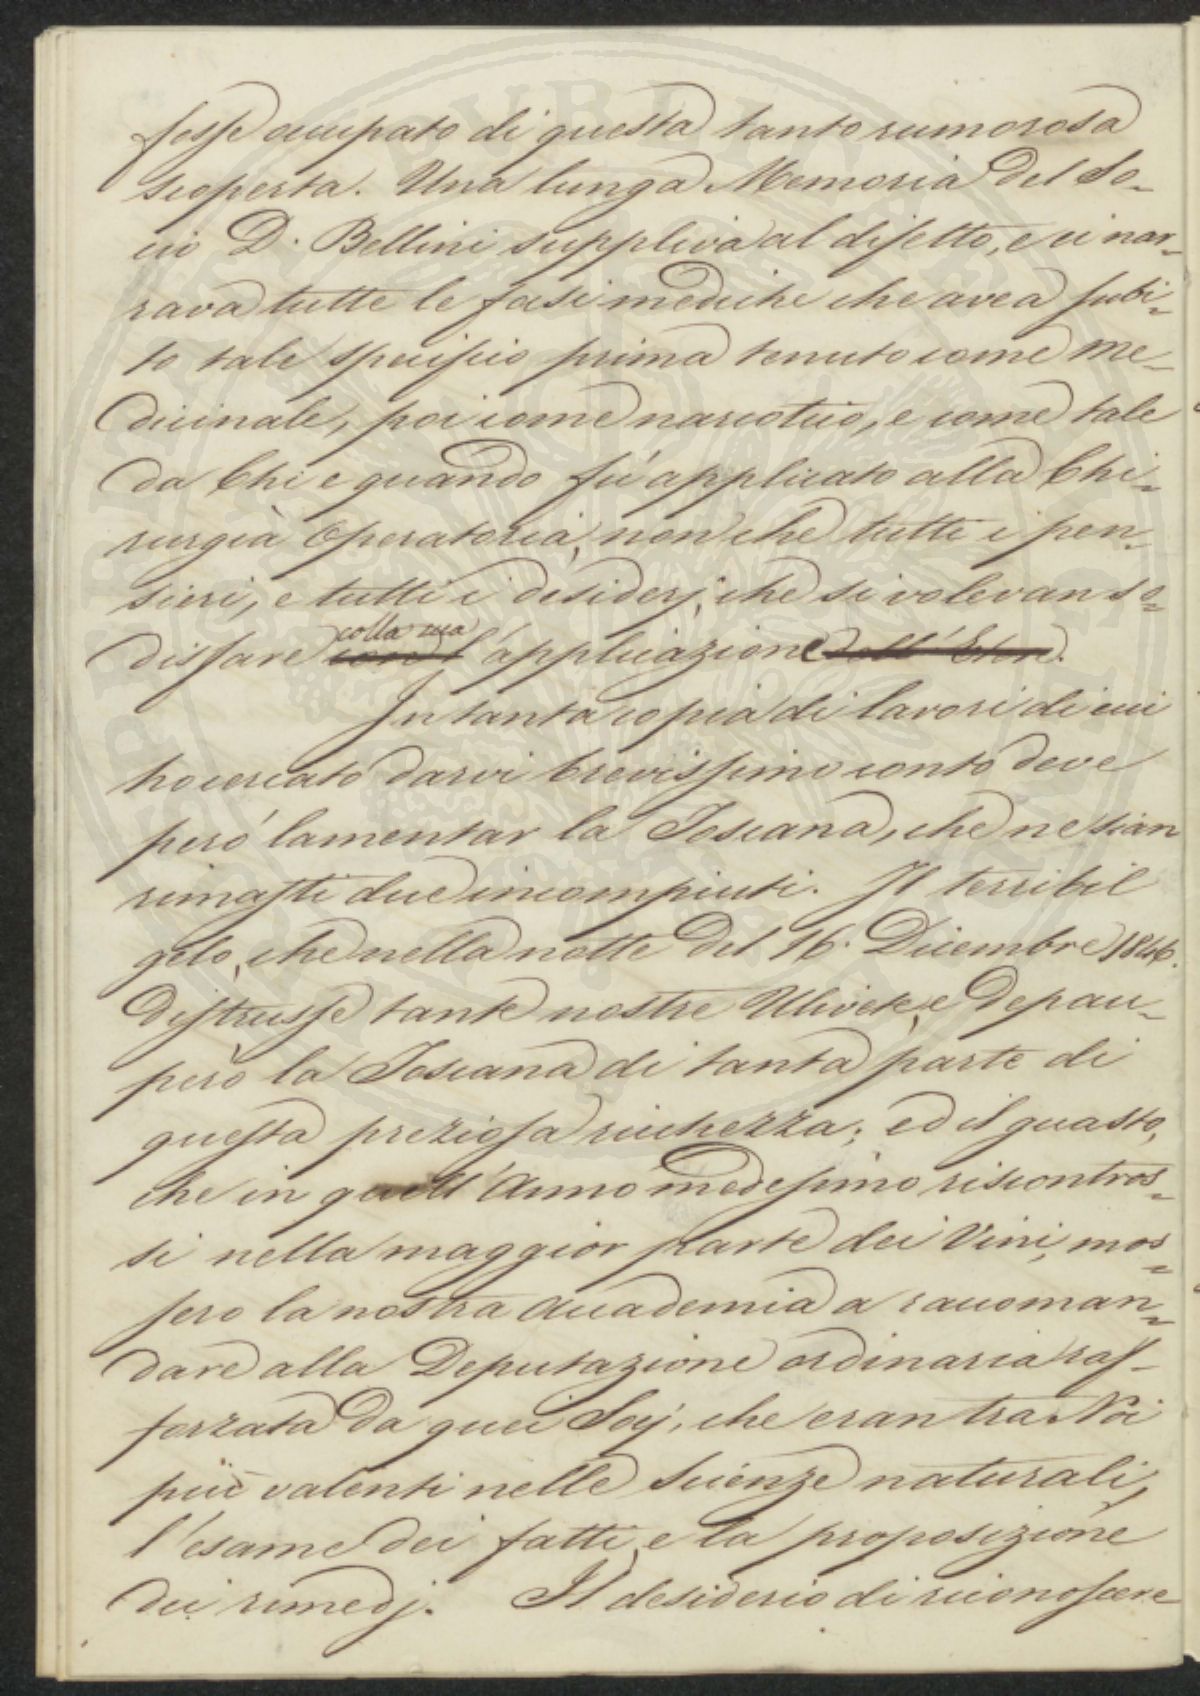 fosse occupato di questa tanto rumorosa
scoperta. Una lunga Memoria del So-
cio D. Bellini suppliva al difetto, e ci nar-
rava tutte le fasi mediche che avea subi-
to tale specifico prima tenuto come me-
dicinale, poi come narcotico, e come tale
da Chi e quando fù applicato alla Chi-
rurgia Operatoria, non che tutti i pen-
sieri, e tutti i desiderj, che si volevan so-
disfare colla sua applicazione
In tanta copia di lavori di cui
ho cercato darvi brevissimo conto deve
però lamentar la Toscana, che ne sian
rimasti due incompiuti. Il terribil
gelo, che nella notte del 16. Dicembre 1846.
distrusse tante nostre Ulivete, e depau-
però la Toscana di tanta parte di
questa preziosa ricchezza; ed il guasto,
che in quell'Anno medesimo riscontros-
si nella maggior parte dei Vini, mos-
sero la nostra Accademia a raccoman-
dare alla Deputazione ordinaria raf-
forzata da quei Socj, che eran tra Noi
più valenti nelle Scienze naturali,
l'esame dei fatti, e la proposizione
dei rimedj. Il desiderio di riconoscere